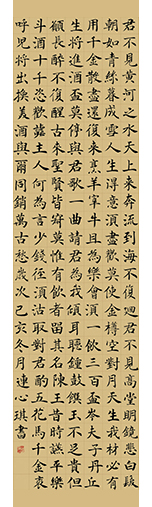 君不見黃河之水天上來奔流到海不復迴君不見高堂明鏡悲白髮
朝如青絲暮成雪人生得意須盡歡莫使金樽空對月天生我材必有
用千金散盡還復來烹羊宰牛且為樂會須一飲三百盃岑夫子丹丘
生將進酒盃莫停與君歌一曲請君為我傾耳聽鍾鼓饌玉不足貴但
願長醉不復醒古來聖賢皆寂莫惟有飲者留其名陳王昔時讌平樂
斗酒十千恣歡謔主人何為言少錢徑須沽取對君酌五花馬千金裘
呼兒將出換美酒與爾同銷萬古愁歲次己亥冬月連心琪書